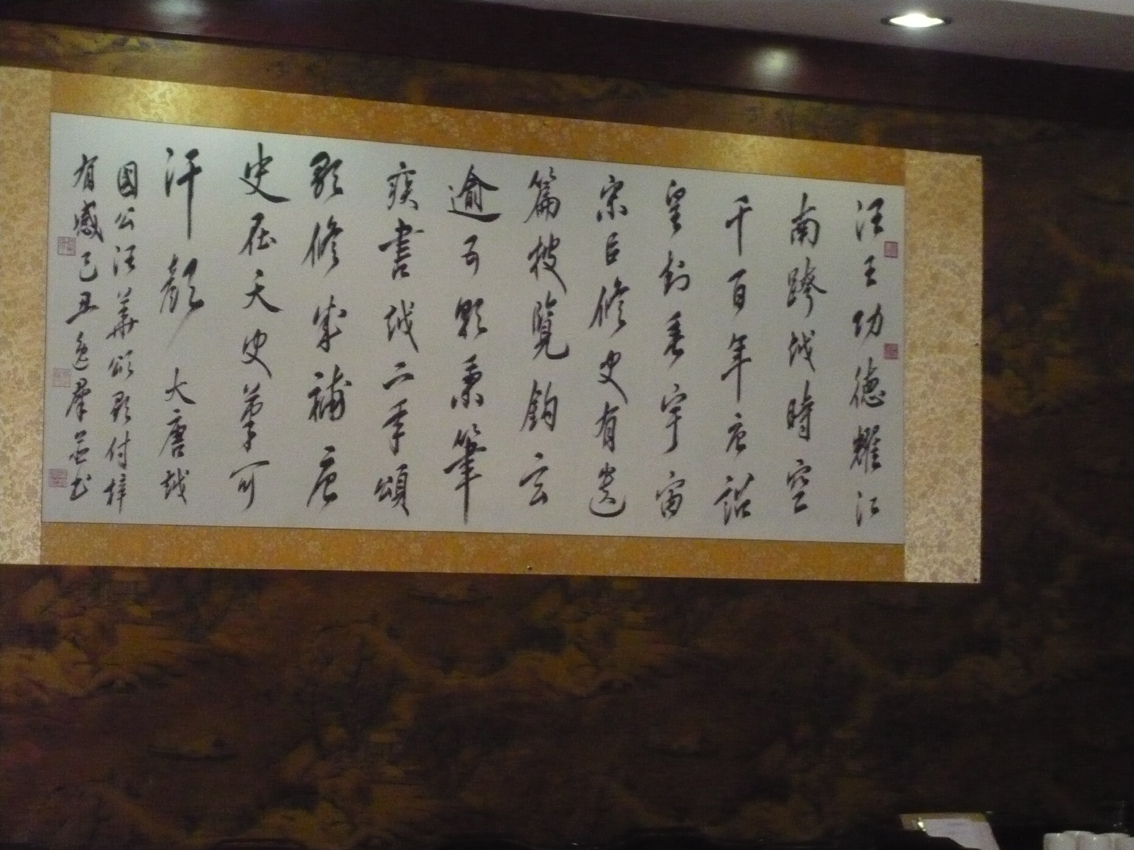 汪王功德耀江
南跨越時空
千百年唐詔
皇封垂宇宙
宋臣修史有遺
篇披覽鈎玄
逾百影秉筆
疾書越二年頌
影修成補唐
史在天史筆可
汗顏 大唐越
國公汪華頌影付梓
有感己丑逸群并书